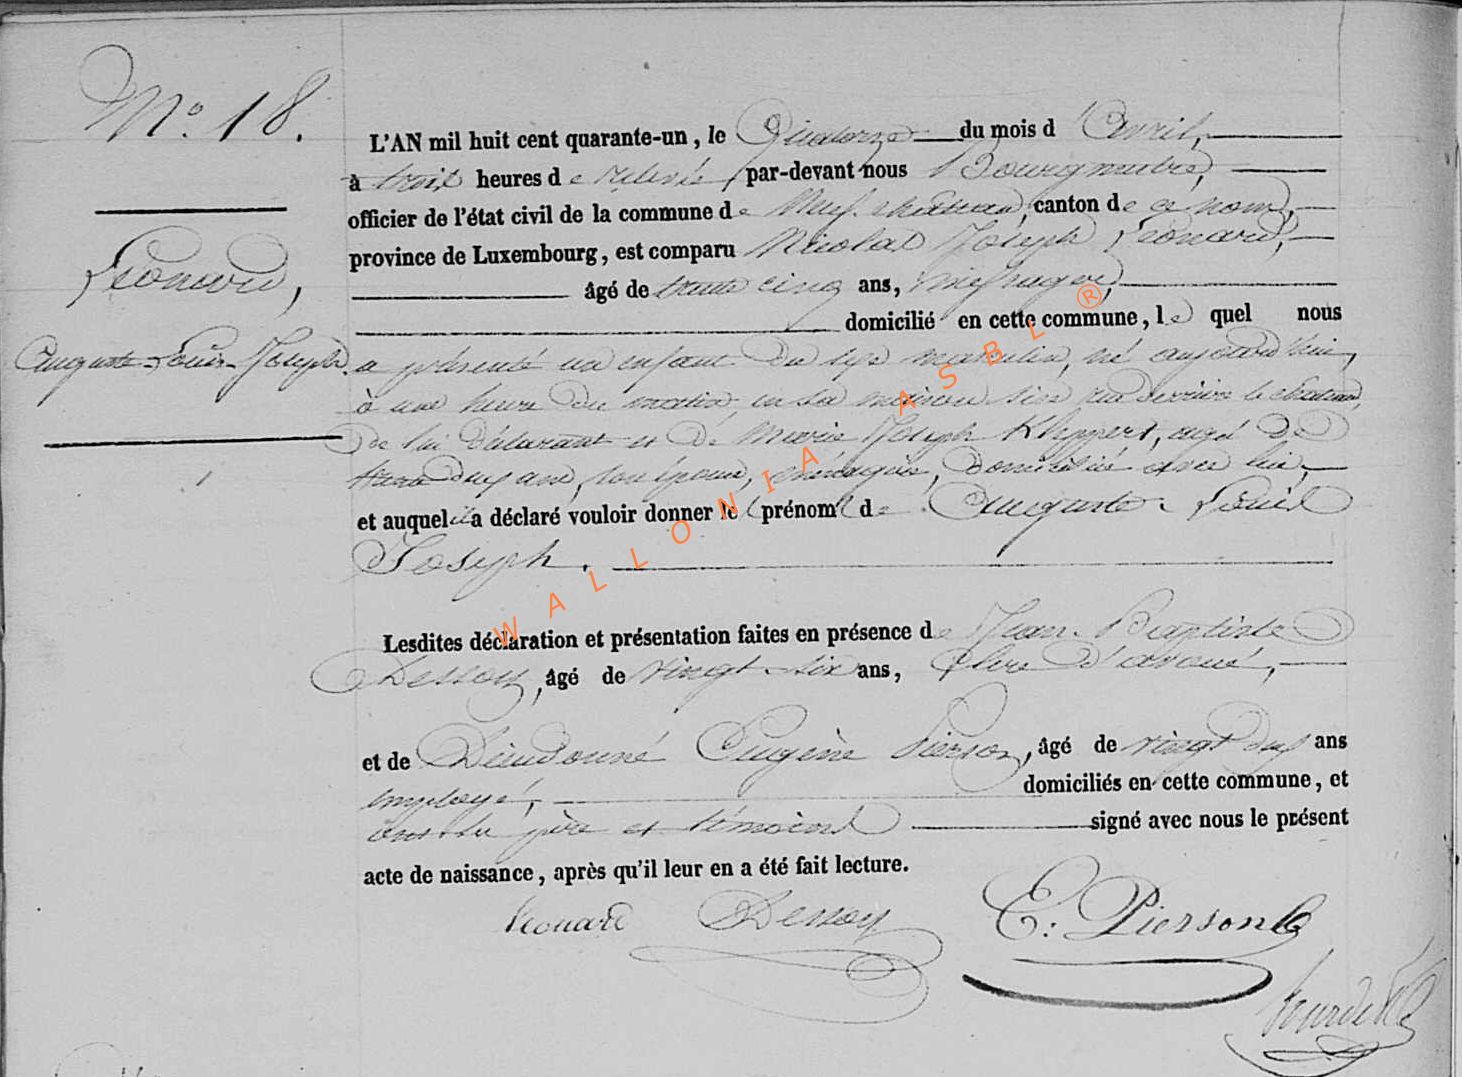 N.º 18.
L'AN mil huit cent quarante-un, le Quatorze du mois d'Avril,
à trois heures de relevée, par-devant nous Bourgmestre,
officier de l'état civil de la commune de Neufchâteau, canton de ce nom,
province de Luxembourg, est comparu Nicolas Joseph Léonard,
Léonard,
âgé de trente cinq ans,
domicilié en cette commune, le quel nous
Auguste-Louis-Joseph.
a présenté un enfant du sexe masculin, né aujourd'hui,
à une heure du matin, en sa maison sise rue derrière le château,
de lui déclarant et de Marie Joseph Klippert, agée de
trente deux ans, son épouse, ménagère, domiciliée avec lui,
et auquel il a déclaré vouloir donner les prénoms de Auguste-Louis
Joseph.
Lesdites déclaration et présentation faites en présence de Jean-Baptiste
Dessoy, âgé de vingt-six ans, Clerc d'avoué,
et de Dieudonné Eugène Pierson, âgé de vingt deux ans
employé, domiciliés en cette commune, et
ont les père et témoins signé avec nous le présent
acte de naissance, après qu'il leur en a été fait lecture.
Léonard Dessoy E. Pierson
WALLONIA ASBL ®